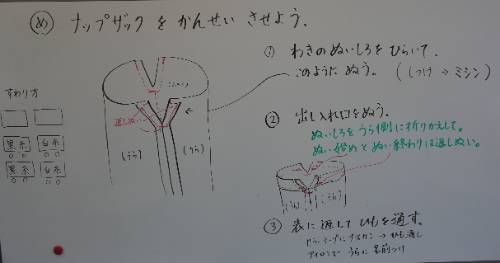 め ナップザックをかんせいさせよう.
① わきのぬいしろをひらいて、
このようにぬう。 (しつけ→ミシン)
すわり方
返しぬい
(うら) (うら)
黒糸 白糸
黒糸 白糸
② 出し入れ口をぬう。
ぬいしろをうら側に折りかえして。
ぬい始めとぬい終わりは返しぬい。
(うら) (うら)
③ 表に返してひもを通す。
→ ひも通し
アイロンで うらに 名前つけ